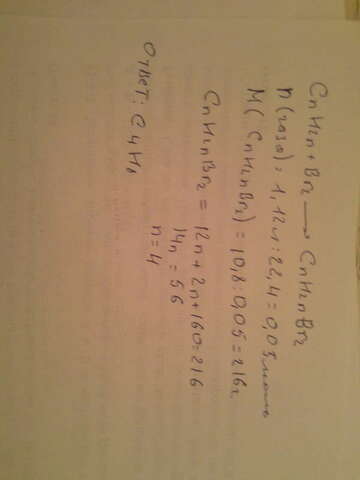 CnH2n + Br2 → CnH2nBr2
n(газа) = 1,12л : 22,4 = 0,05 моль
M(CnH2nBr2) = 10,8 : 0,05 = 216г
CnH2nBr2 = 12n + 2n + 160 = 216
14n = 56
n = 4
Ответ: C4H8